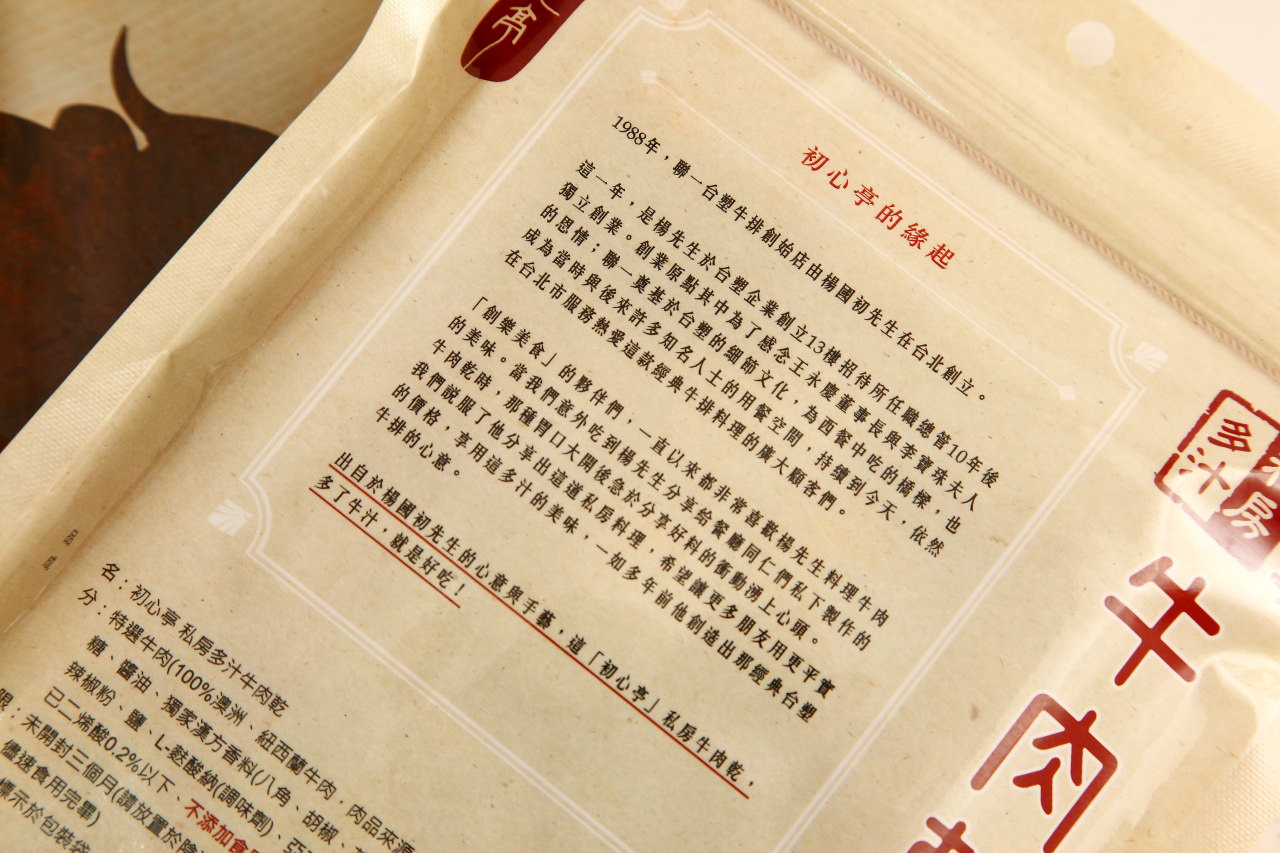 亭
初心亭的緣起
1988年，聯一台塑牛排創始店由楊國初先生在台北創立。
這一年，是楊先生於台塑企業創立13樓招待所任職總管10年後
獨立創業。創業原點其中為了感念王永慶董事長與李寶珠夫人
的恩情；聯一奠基於台塑的細節文化，為西餐中吃的橋樑，也
成為當時與後來許多知名人士的用餐空間，持續到今天，依然
在台北市服務熱愛這款經典牛排料理的廣大顧客們。
「創樂美食」的夥伴們，一直以來都非常喜歡楊先生料理牛肉
的美味。當我們意外吃到楊先生分享給餐廳同仁們私下製作的
牛肉乾時，那種胃口大開後急於分享好料的衝動湧上心頭。
我們說服了他分享出這道私房料理，希望讓更多朋友用更平實
的價格，享用這多汁的美味，一如多年前他創造出那經典台塑
牛排的心意。
出自於楊國初先生的心意與手藝，這「初心亭」私房牛肉乾，
多了牛汁，就是好吃！
房
多汁
牛肉
品名：初心亭 私房多汁牛肉乾
分：特選牛肉(100%澳洲、紐西蘭牛肉，肉品來源
糖、醬油、獨家漢方香料(八角、胡椒、
辣椒粉、鹽、L-麩酸鈉(調味劑)、亞
己二烯酸0.2%以下、不添加食
限：未開封三個月(請放置於陰
儘速食用完畢)
標示於包裝袋